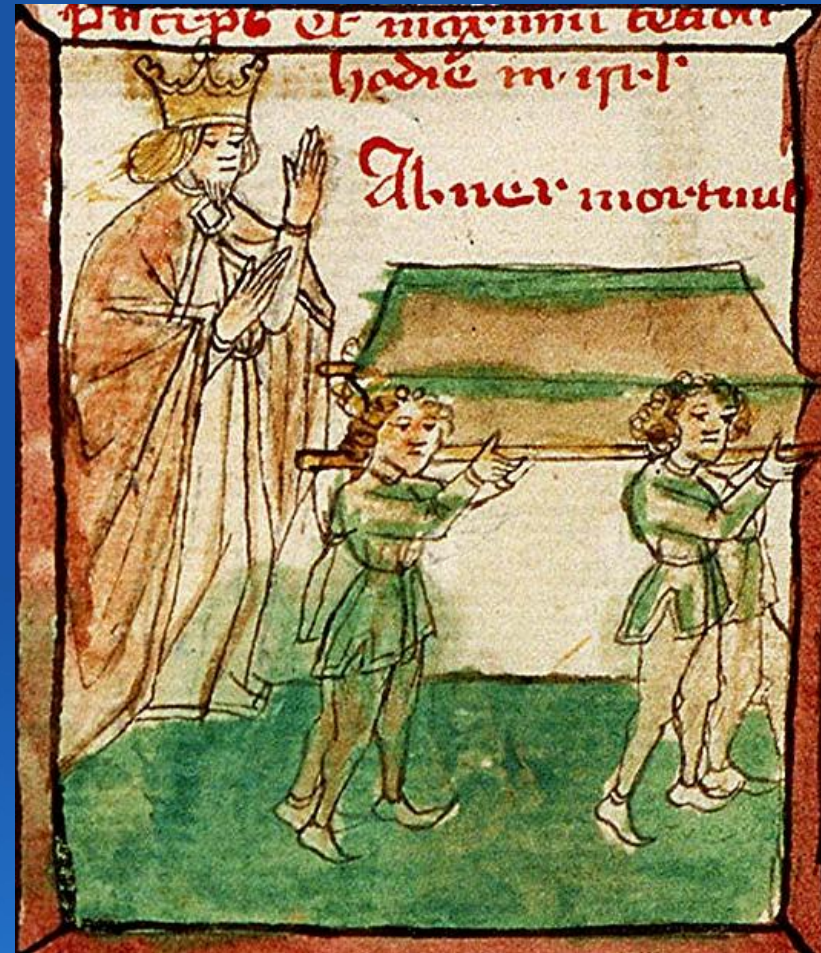 Princeps et maximus cecidit
hodie in isrl
Abner mortuus